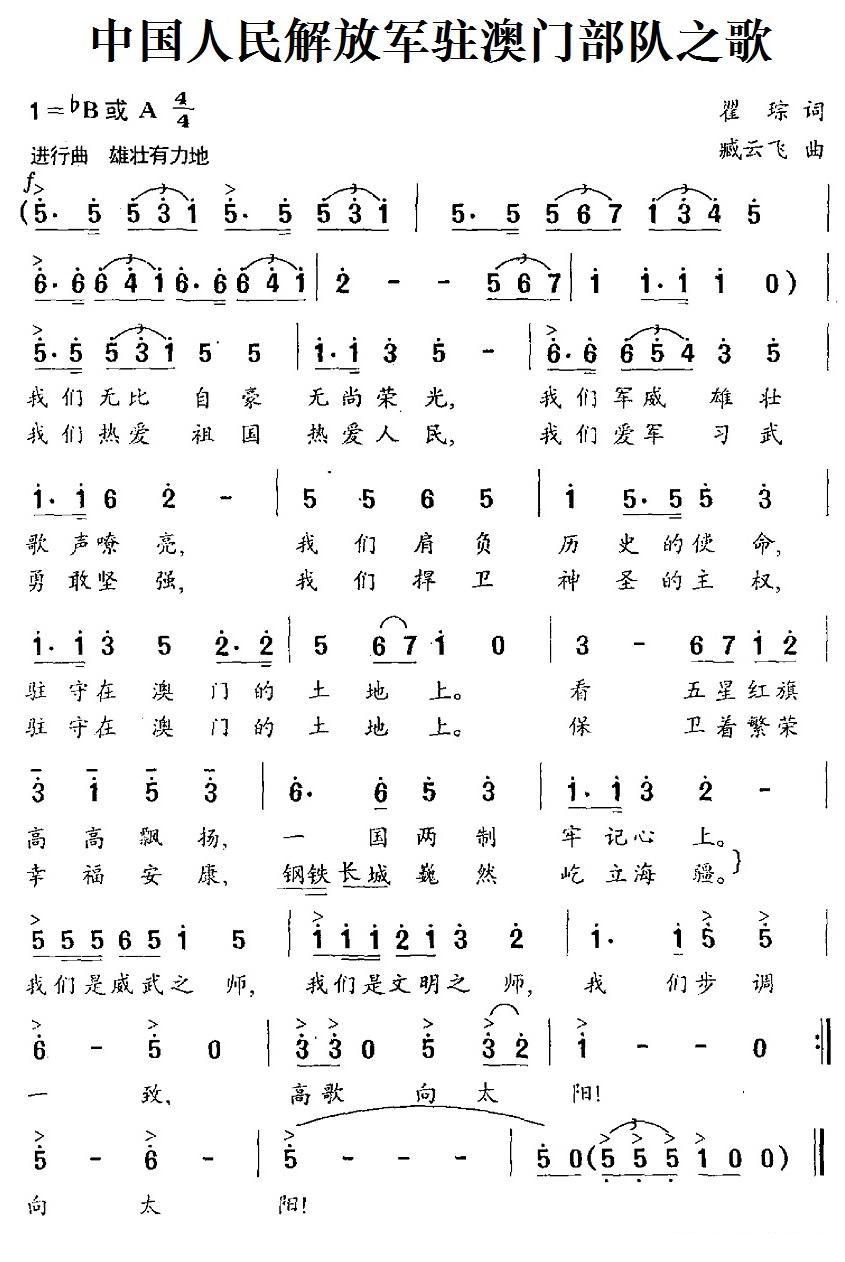 中国人民解放军驻澳门部队之歌
1=♭B或 A 4/4
瞿 琮 词
进行曲 雄壮有力地
臧云飞 曲
f
(5. 5 5 3 1 5. 5 5 3 1 | 5. 5 5 6 7 1 3 4 5 |
6. 6 6 4 1 6. 6 6 4 1 | 2 - - 5 6 7 | 1 1. 1 1 0) |
5. 5 5 3 1 5 5 | 1. 1 3 5 - | 6. 6 6 5 4 3 5
我们无比 自豪 无尚荣光, 我们军威 雄壮
我们热爱 祖国 热爱人民, 我们爱军 习武
1. 1 6 2 - | 5 5 6 5 | 1 5. 5 5 3 |
歌声嘹亮, 我们肩负 历史的使命,
勇敢坚强, 我们捍卫 神圣的主权,
1. 1 3 5 2. 2 | 5 6 7 1 0 | 3 - 6 7 1 2 |
驻守在澳门的土地上。 看 五星红旗
驻守在澳门的土地上。 保 卫着繁荣
3 1 5 3 | 6. 6 5 3 | 1. 1 3 2 - |
高高飘扬, 一国两制 牢记心上。
幸福安康, 钢铁长城巍然 屹立海疆。}
5 5 5 6 5 1 5 | 1 1 1 2 1 3 2 | 1. 1 5 5 |
我们是威武之师, 我们是文明之师, 我们步调
6 - 5 0 | 3 3 0 5 3 2 | 1 - - 0 :‖
一致, 高歌向太阳!
5 - 6 - | 5 - - - | 5 0 (5 5 5 1 0 0) ‖
向太阳!